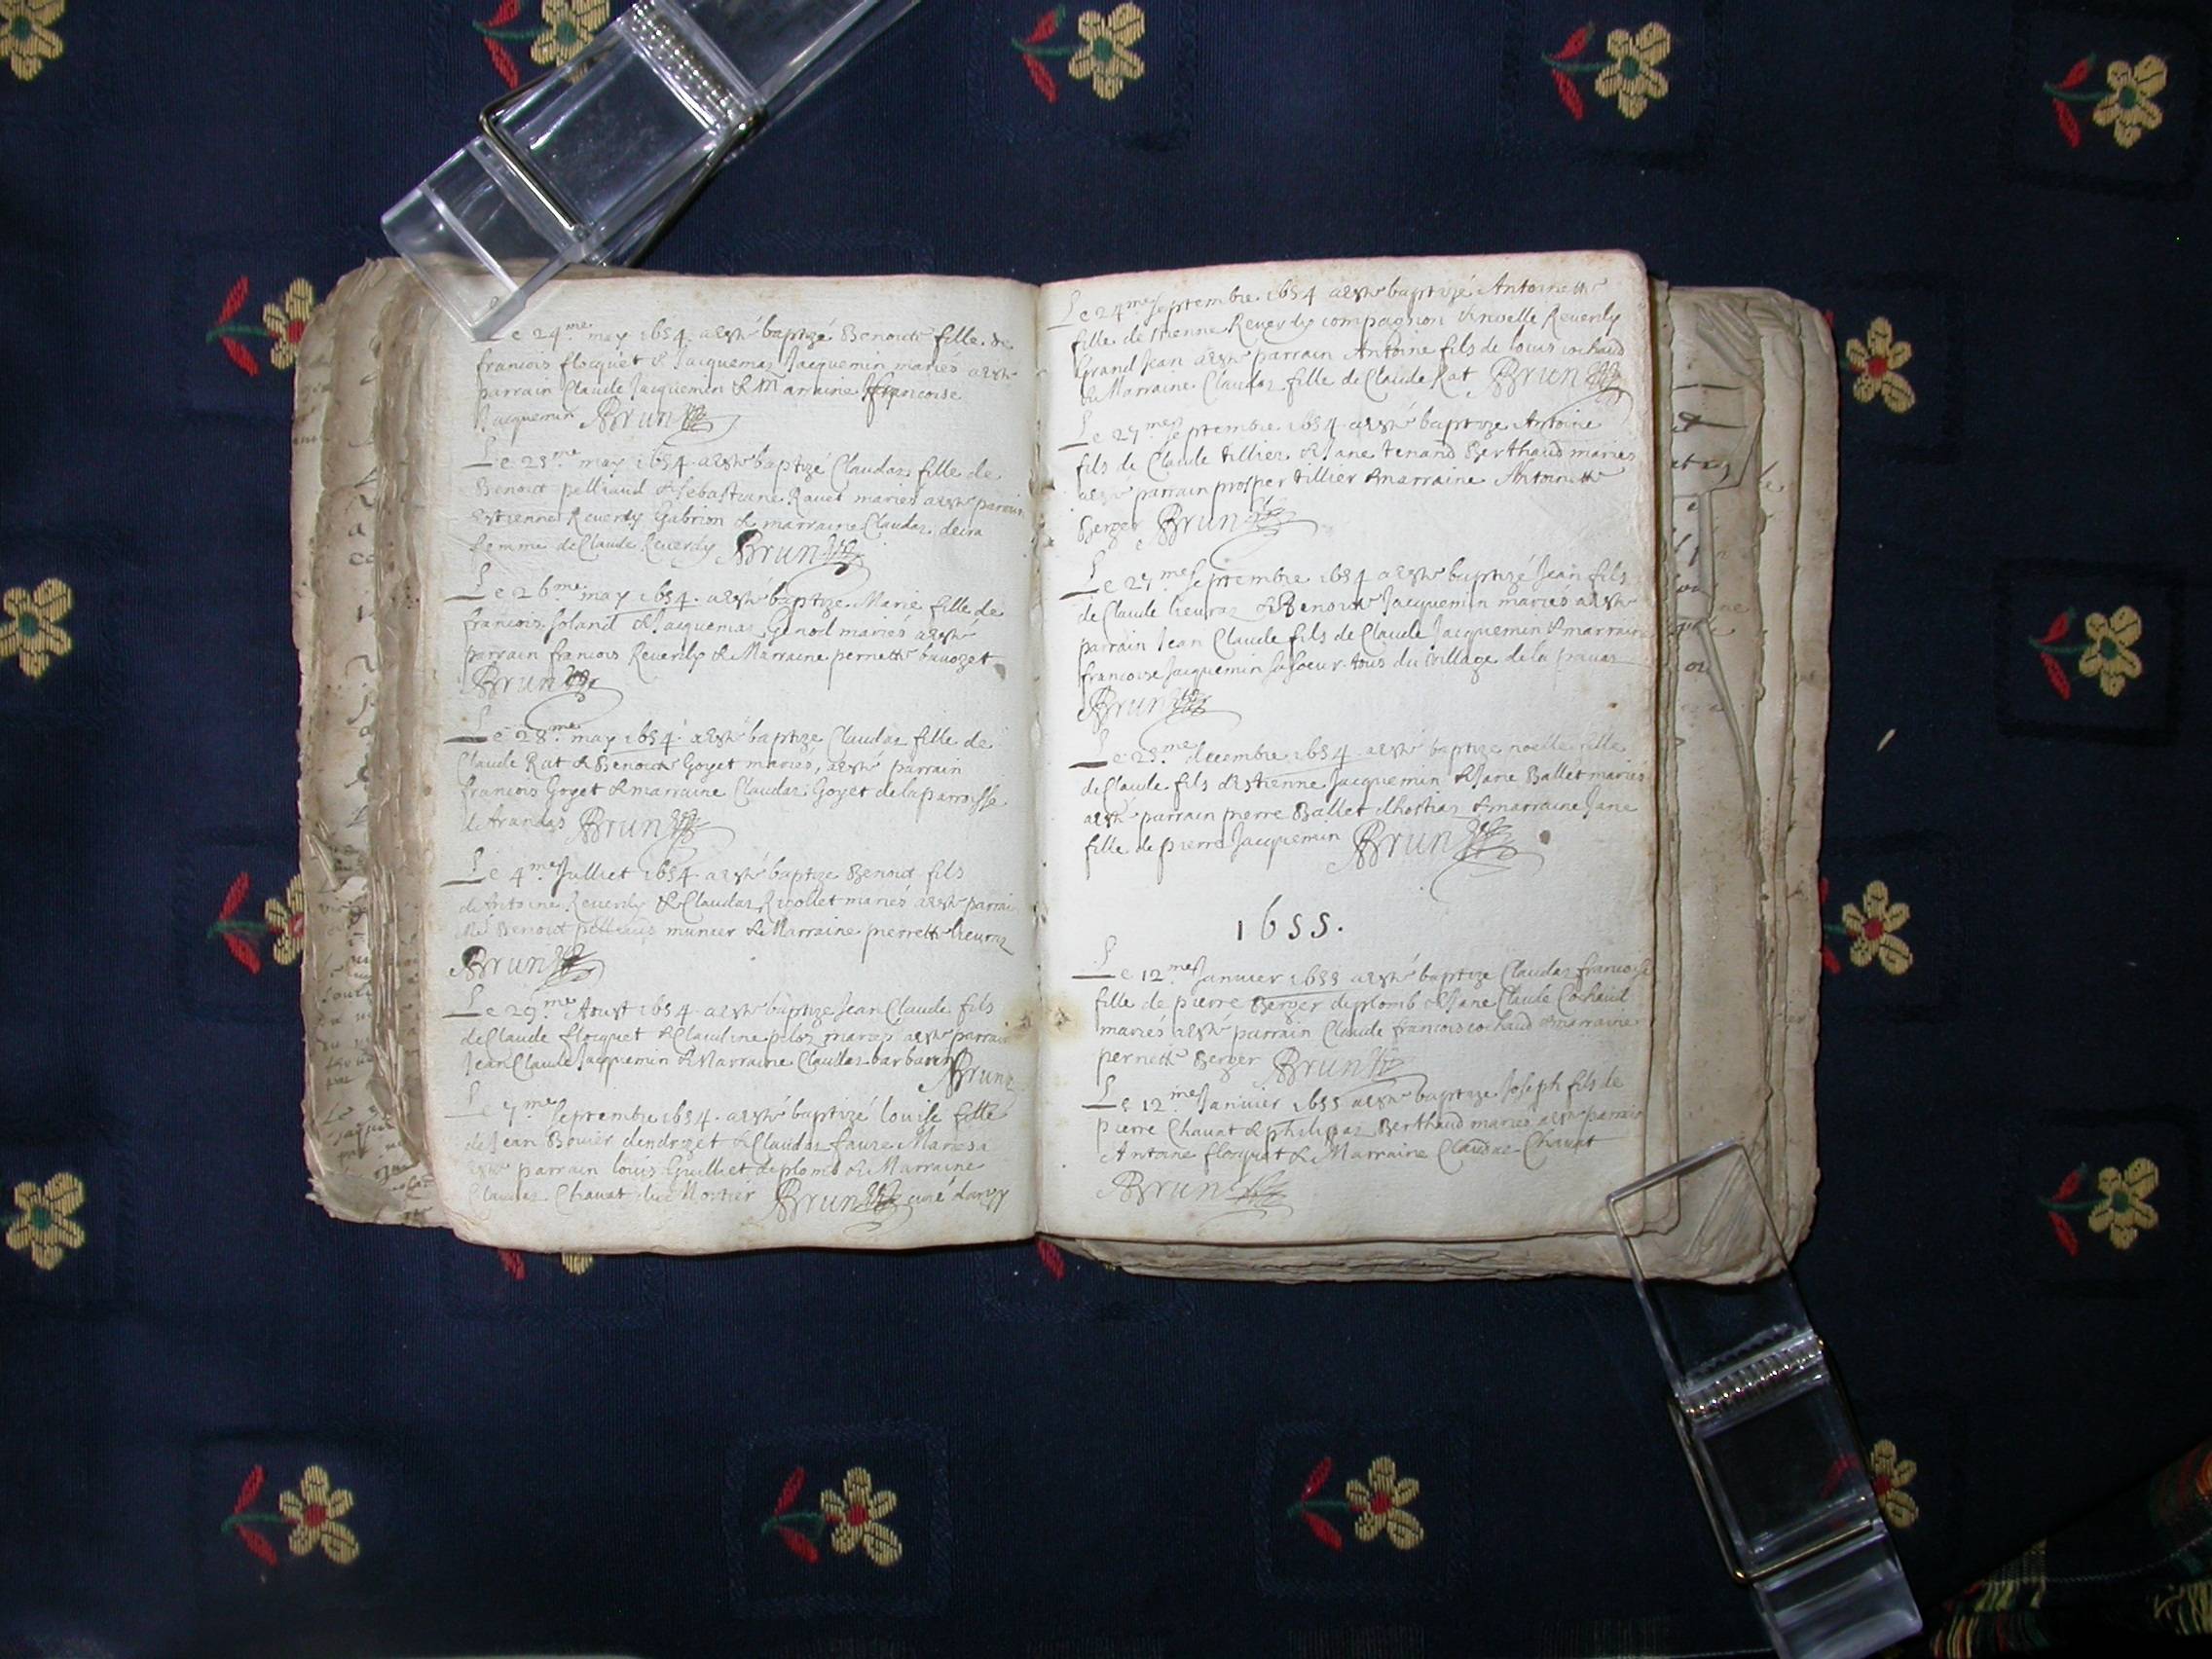 Le 24.me may 1654. a esté baptizé Benoiste fille de
francois flocquet & Jacquemaz Jacquemin mariés a esté
parrain Claude Jacquemin & Marraine francoise
Jacquemin Brun
Le 25.me may 1654. a esté baptizé Claudaz fille de
Benoict pelliaud & Sebastiane Ravet mariés a esté parrain
Estienne Reverdy Gabrion & marraine Claudaz
femme de Claude Reverdy Brun
Le 26.me may 1654. a esté baptize Marie fille de
francois & Jacquemaz Genod mariés a esté
parrain francois Reverdy & Marraine pernette
Brun
Le 28.me may 1654. a esté baptize Claudaz fille de
Claude Rat & Benoiste Goyet mariés, a esté parrain
francois Goyet & marraine Claudaz Goyet de la parroisse
d'Arandas Brun
Le 4.me Julliet 1654. a esté baptize Benoict fils
de Antoine Reverdy & Claudaz mariés a esté parrain
Benoict munier & Marraine pierrette lieuraz
Brun
Le 29.me Aoust 1654. a esté baptize Jean Claude fils
de Claude flocquet & Claudine mariés a esté parrain
Jean Claude Jacquemin & Marraine Claudaz
Brun
Le 7.me Septembre 1654. a esté baptizé louise fille
de Jean Bovier & Claudaz faure Mariés a
esté parrain louis Guilliet deplomb & Marraine
Claudaz Chavat du Mortier Brun curé
Le 24.me Septembre 1654 a esté baptizé Antoinette
fille de Estienne Reverdy compagnon & novelle Reverdy
Grand Jean a esté parrain Antoine fils de louis cochaud
& Marraine Claudaz fille de Claude Rat Brun
Le 27.me Septembre 1654. a esté baptize Antoine
fils de Claude tillier & Jane tenand Berthaud mariés
a esté parrain prosper tillier & marraine Antoinette
Berger Brun
Le 27.me Septembre 1654 a esté baptizé Jean fils
de Claude lieuraz & Benoiste Jacquemin mariés a esté
parrain Jean Claude fils de Claude Jacquemin & marraine
francoise Jacquemin sa soeur tous du village de la
Brun
Le 25.me decembre 1654. a esté baptize noelle fille
de Claude fils d'Estienne Jacquemin & Jane Ballet mariés
a esté parrain pierre Ballet d'hostiaz & marraine Jane
fille de pierre Jacquemin Brun
1655.
Le 12.me Janvier 1655 a esté baptize Claudaz francoise
fille de pierre Berger deplomb & Jane Claude Cochaud
mariés a esté parrain Claude francois cochaud & marraine
pernette Berger Brun
Le 12.me Janvier 1655 a esté baptize Joseph fils de
pierre Chavat & philipaz Berthaud mariés a esté parrain
Antoine flocquet & Marraine Claudaz Chavat
Brun